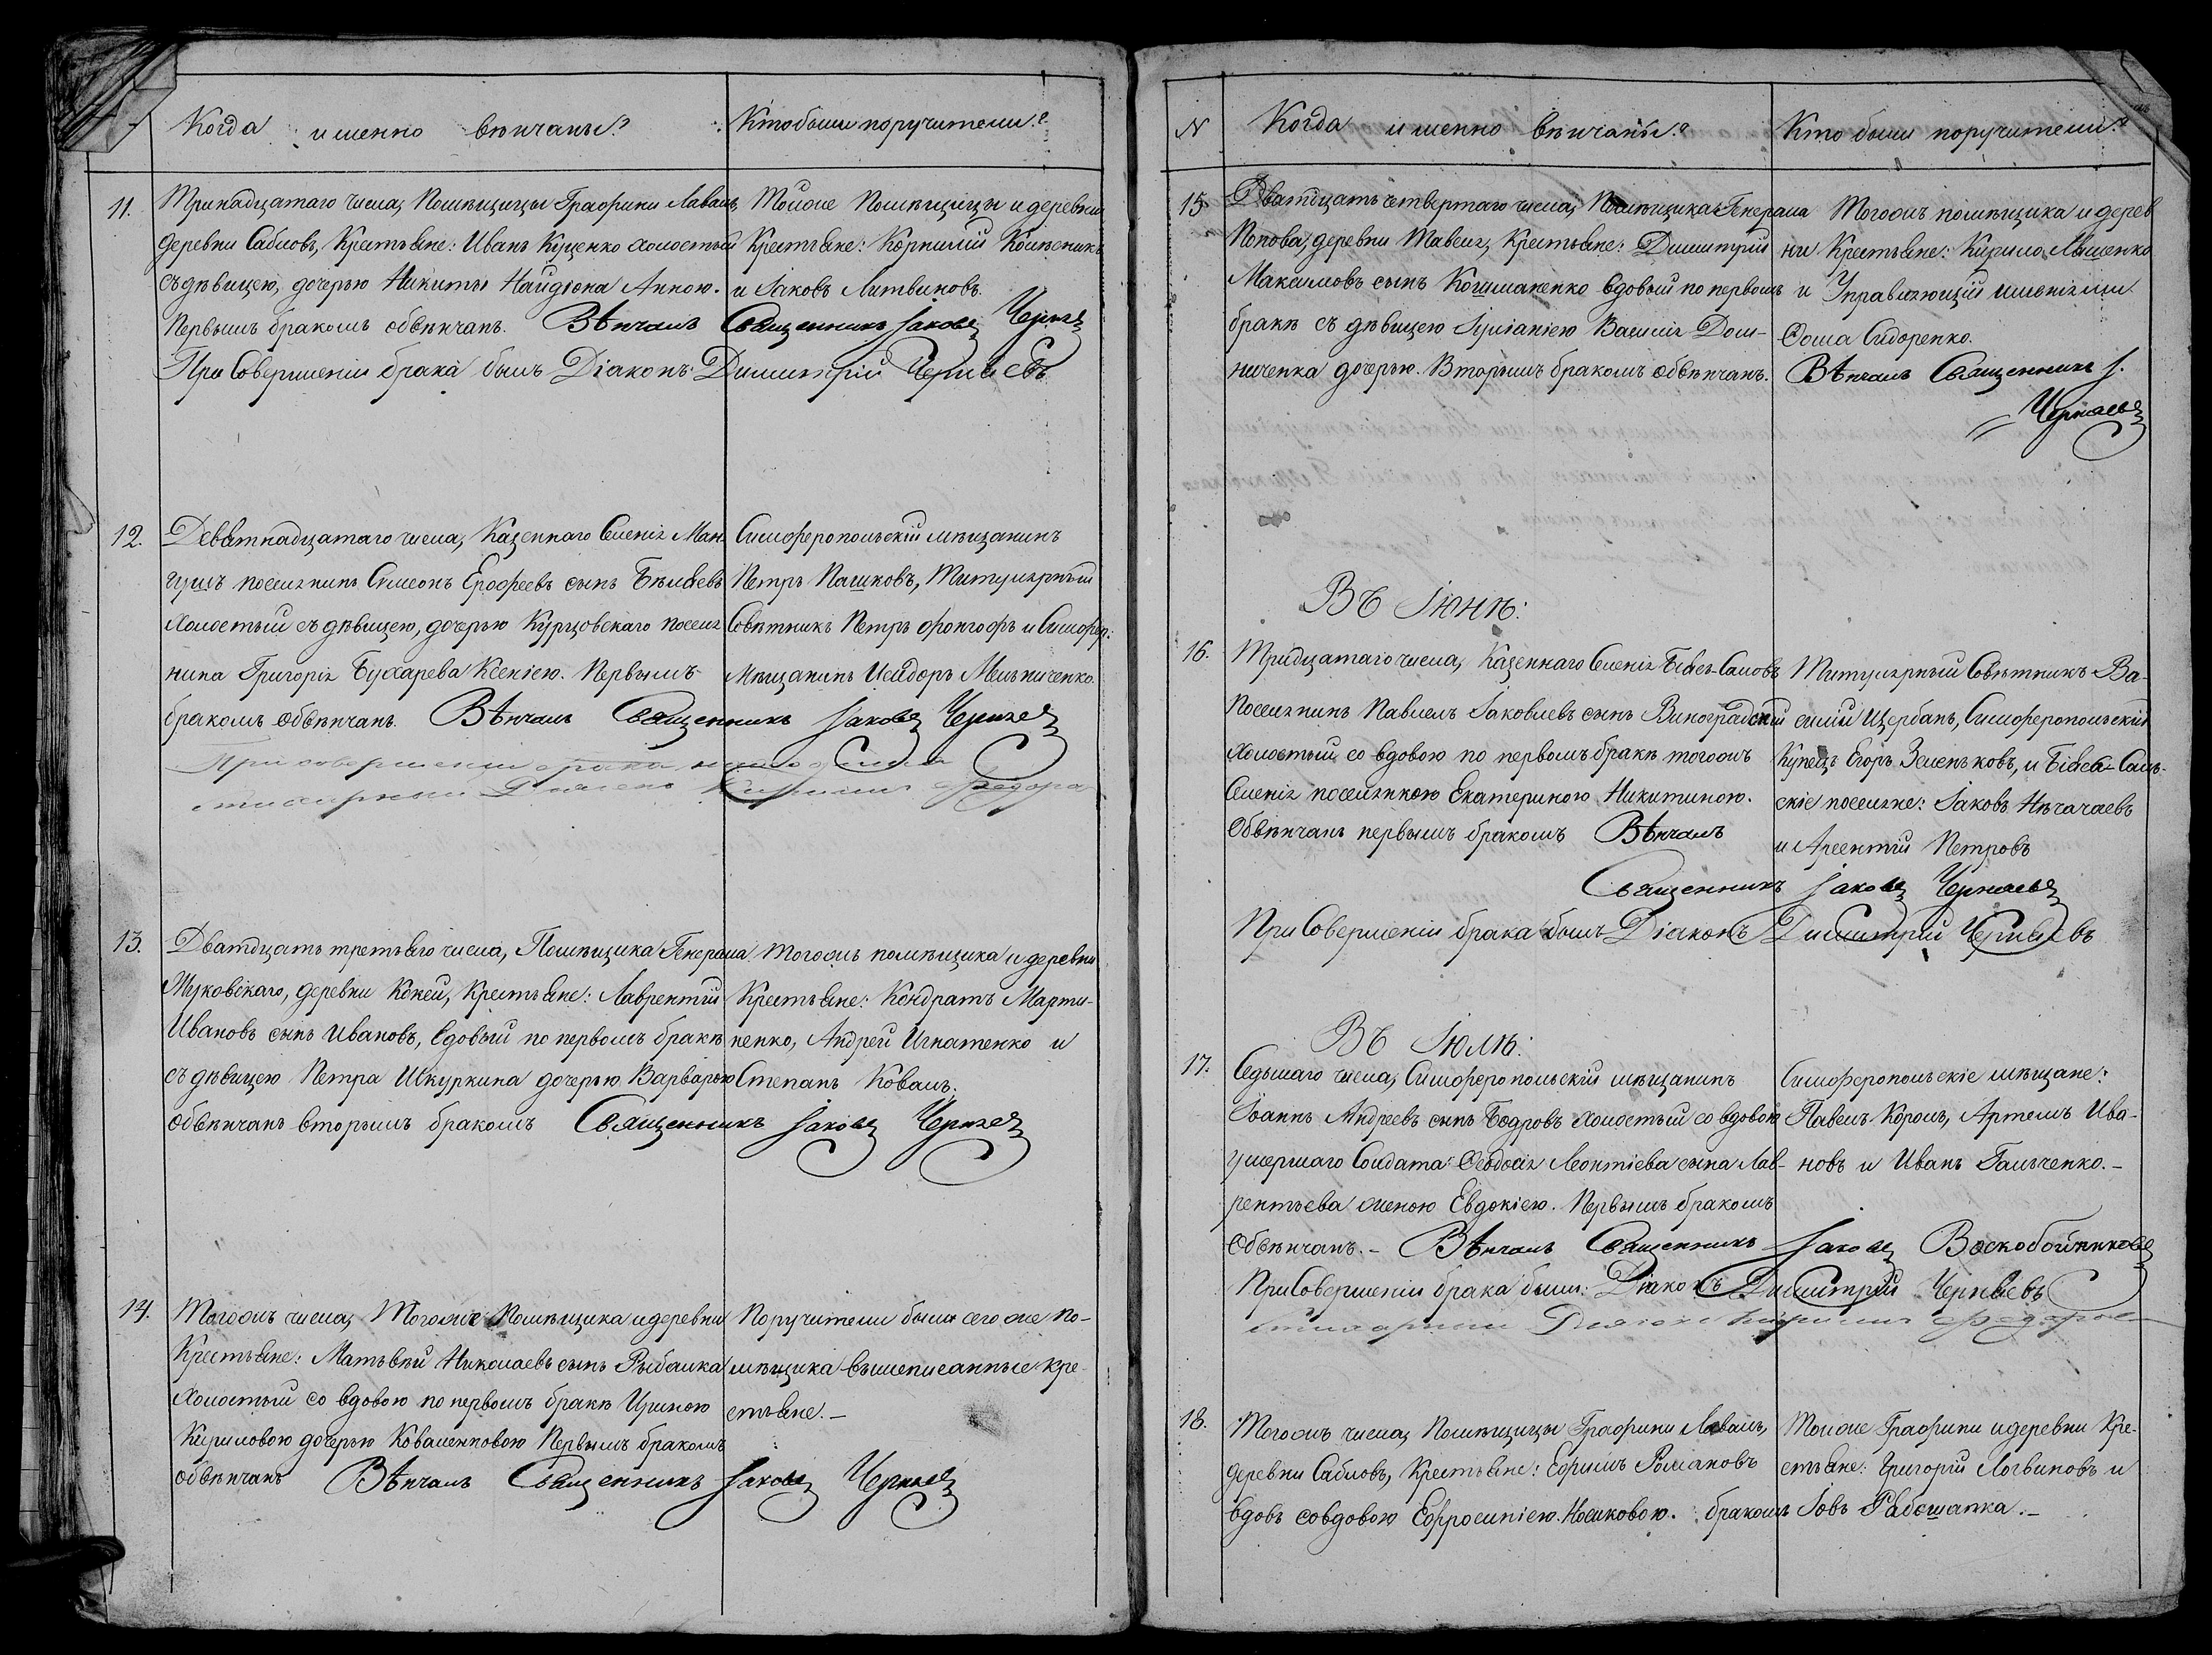 Когда именно вѣнчаны?
Кто были поручители?
11.
Тринадцатаго числа, Помѣщицы Графини Лаваль,
деревни Саблов, Крестьяне: Иванъ Куценко холостый
съ дѣвицею, дочерью Никиты Найдіока Анною.
Первымъ бракомъ обвѣнчанъ. Вѣнчалъ Священникъ Іаковъ Черняевъ
При Совершеніи брака былъ Діаконъ Димитрій Черняевъ
Тойже Помѣщицы и деревни
Крестьяне: Корнилій Колѣсникъ
и Іаковъ Литвиновъ.
12.
Девятнадцатаго числа, Казеннаго Селенія Ман-
гушъ поселянинъ Симеонъ Ерофеевъ сынъ Бѣляевъ
холостый съ дѣвицею, дочерью Курцовскаго поселя
нина Григорія Бухарева Ксеніею. Первымъ
бракомъ обвѣнчанъ. Вѣнчалъ Священникъ Іаковъ Черняевъ
При совершеніи брака
стихарный Діячекъ Кириллъ Федоро
Симферопольскій мѣщанинъ
Петръ Пашковъ, Титулярный
Совѣтникъ Петръ Фонгофъ и Симфер:
Мѣщанинъ Исидоръ Мельниченко.
13.
Дватдцать третьяго числа, Помѣщика Генерала
Жуковскаго, деревни Конеи, Крестьяне: Лаврентій
Ивановъ сынъ Ивановъ, вдовый по первомъ бракѣ
съ дѣвицею Петра Шкуркина дочерью Варварою
обвѣнчанъ вторымъ бракомъ Священникъ Іаковъ Черняевъ
тогожъ помѣщика и деревни
Крестьяне: Кондратъ Марти-
ненко, Андрей Игнатенко и
Степанъ Коваль.
14.
Тогожъ числа, Тогоже Помѣщика и деревни
Крестьяне: Матьвѣй Николаевъ сынъ Рыбалка
холостый со вдовою по первомъ бракѣ Ириною
Кириловою дочерью Коваленковою Первымъ бракомъ
обвѣнчанъ Вѣнчалъ Священникъ Іаковъ Черняевъ
Поручители были сего же по-
мѣщика вышеписанные кре-
стьяне.-
N
Когда именно вѣнчаны?
Кто были поручители?
15.
Дватдцать четвертаго числа, Помѣщика Генерала
Попова, деревни Тавель, Крестьяне: Димитрій
Максимовъ сынъ Кошманенко вдовый по первомъ
бракѣ съ дѣвицею Іуліаніею Василія Дом-
ниченка дочерью. Вторымъ бракомъ обвѣнчанъ.
Тогожъ помѣщика и дерев
ни Крестьяне: Кирило Лященко
и Управляющій имѣніями
Фома Сидоренко.
Вѣнчалъ Священникъ І.
Черняевъ
Въ Іюнѣ:
16.
Тридцатаго числа, Казеннаго Селенія Біясъ-Саловъ
Поселянинъ Павелъ Іаковлевъ сынъ Виноградскій
холостый со вдовою по первомъ бракѣ тогожъ
Селенія поселянкою Екатериною Никитиною.
Обвѣнчанъ первымъ бракомъ Вѣнчалъ
Священникъ Іаковъ Черняевъ
При Совершеніи брака былъ Діаконъ Димитрій Черняевъ
Титулярный Совѣтникъ Ва-
силій Щербанъ, Симферопольскій
Купецъ Егоръ Зеленьковъ, и Біяса-Саль-
скіе поселяне: Іаковъ Нѣчачаевъ
и Арсентій Петровъ
Въ Іюлѣ:
17.
Седьмаго числа, Симферопольскій мѣщанинъ
Іоаннъ Андреевъ сынъ Бодровъ холостый со вдовою
умершаго Солдата: Феодосія Леонтіева сына Лав-
рентьева женою Евдокіею. Первымъ бракомъ
Обвѣнчанъ.- Вѣнчалъ Священникъ Іаковъ Воскобойниковъ
При Совершеніи брака были: Діаконъ Димитрій Черняевъ
стихарный Діячекъ Кириллъ Федоров
Симферопольскіе мѣщане:
Павелъ Король, Артемъ Ива-
новъ и Иванъ Гальченко.-
18.
Тогожъ числа, Помѣщицы Графини Лаваль,
деревни Саблов, Крестьяне: Ефимъ Романовъ
вдовъ со вдовою Ефросиніею Носиковою. бракомъ
Тойже Графини и деревни Кре-
стьяне: Григорій Логвиновъ и
Іовъ Рябошапка.-